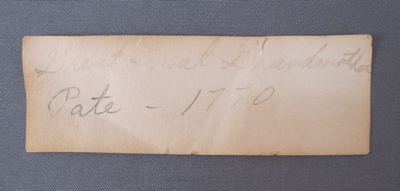 Great - Great Grandmother
Pate - 1770